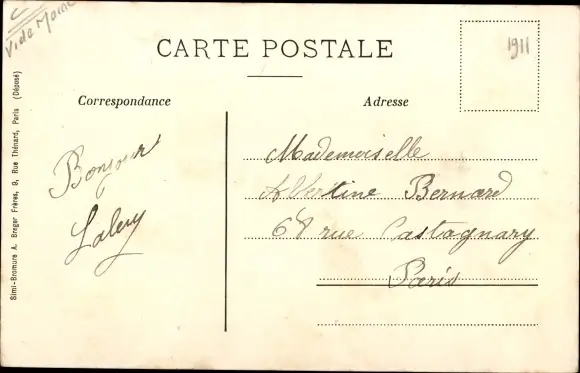 Vide Maine
CARTE POSTALE
1911
Correspondance
Adresse
Bonjour
Mademoiselle
Albertine Bernard
68 rue Castagnary
Paris
Simi-Bromure A. Breger Frères, 9, Rue Thénard, Paris (Déposé)